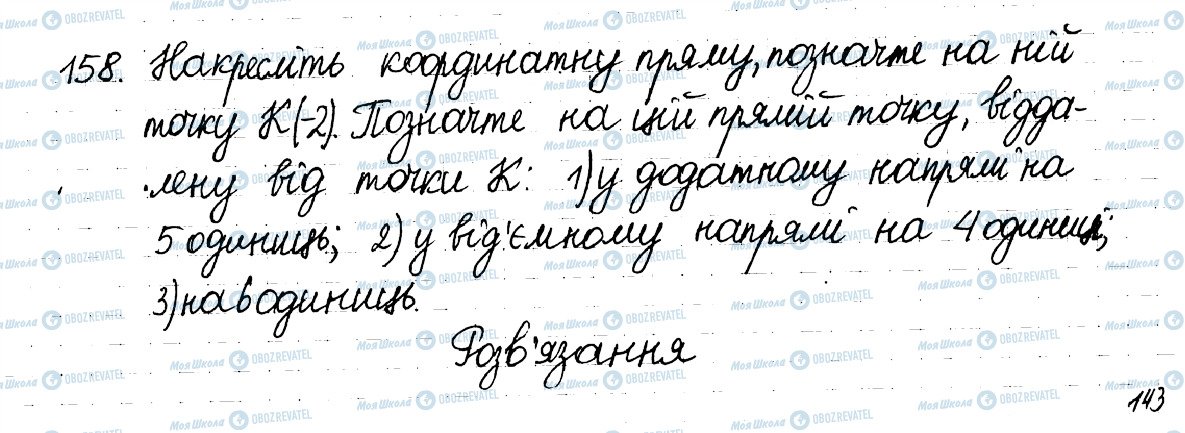 158. Накресліть координатну пряму, позначте на ній
точку К(-2). Позначте на цій прямій точку, відда-
лену від точки К: 1) у додатному напрямі на
5 одиниць; 2) у від'ємному напрямі на 4 одиниці;
3) на 6 одиниць.
Розв'язання
143